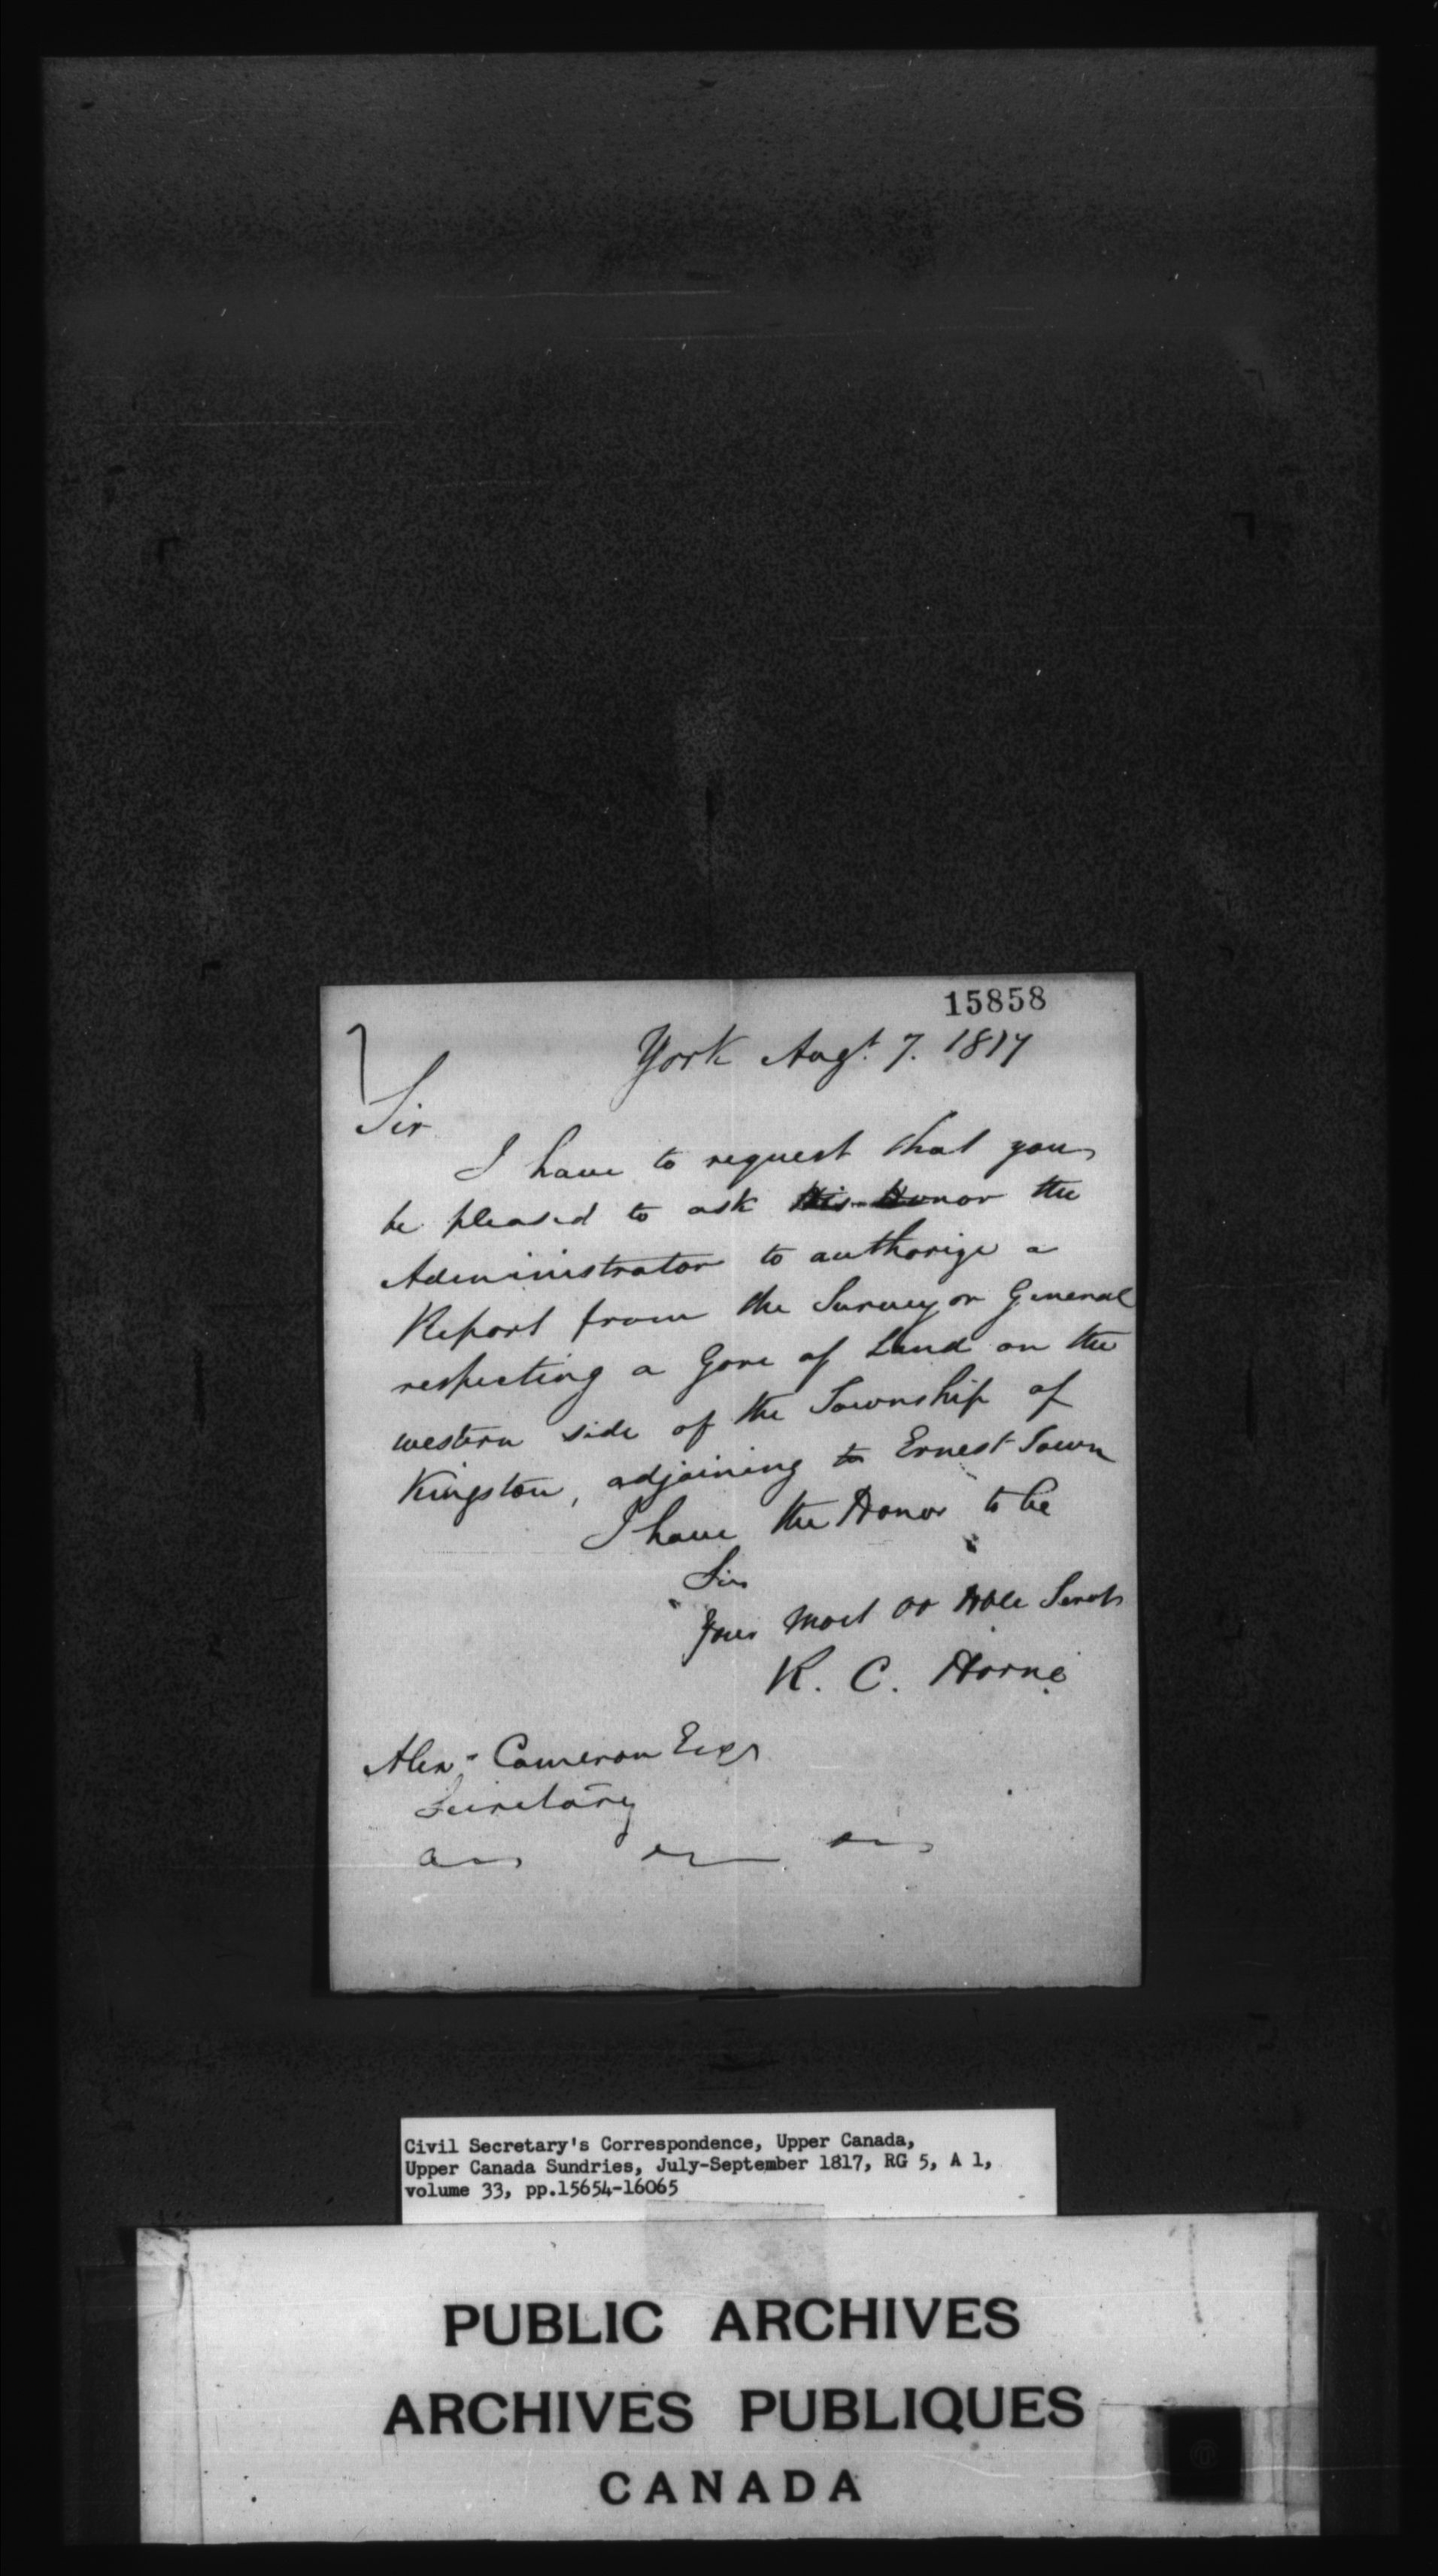 15858
York Augt. 7. 1817
Sir
I have to request that you
be pleased to ask His Honor the
Administrator to authorize a
Report from the Surveyor General
respecting a Gore of Land on the
western side of the Township of
Kingston, adjoining to Ernest Town
I have the Honor to be
Sir
Your Most Ob Hble Servt
R. C. Horne
Alexr Cameron Esqr
Secretary
Civil Secretary's Correspondence, Upper Canada,
Upper Canada Sundries, July-September 1817, RG 5, A 1,
volume 33, pp.15654-16065
PUBLIC ARCHIVES
ARCHIVES PUBLIQUES
CANADA